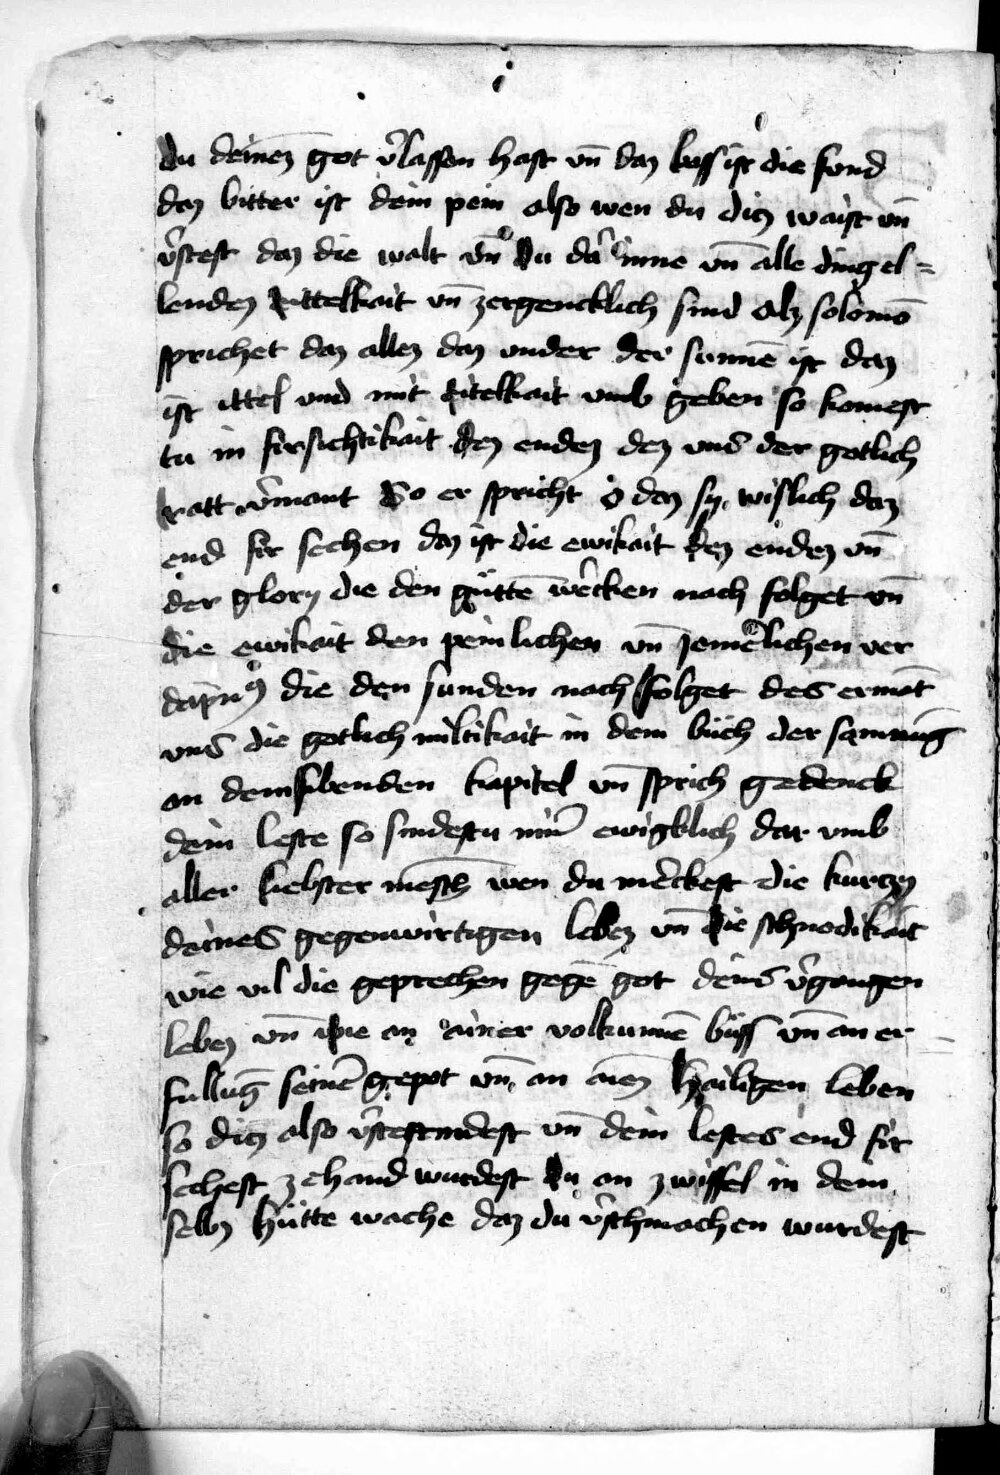 du deinen got v̄lassen hast vn̄ daz boss ist die sund
daz bitter ist dein pein also wen du dicz waist vn̄
v̄stest daz die walt vn̄ du dar inne vn̄ alle ding el=
lenden ittelkait vn̄ zergencklich sind alz solomō
sprichet daz allez daz vnder der sunnē ist daz
ist ittel vnd mit itelkait vmb geben so komest
tu in firsichtikait dez endez dez vns der gotlich
ratt v̄mant So er spricht o daz sy wislich daz
end fir sechen daz ist die ewikait dez endez vn̄
der glory die den güttē wercken nach folget vn̄
die ewikait den peinlichen vn̄ jemerlichen ver
die den sunden nach folget des ermāt
vns die gotlich miltikait in dem büch der samnūg
an dem sibenden kapitel vn̄ sprich gedenck
dein leste so sindestu nim̄er ewigklich dar vmb
aller liebster mēsch wen du merckest die kurczy
deines gegenwirtigen lebez vn̄ die schnodikait
wie vil die geprechen gegē got deins v̄gangen
lebez vn̄ wie an ainer volkumnē büss vn̄ an er
fullūg seinē gepot vn̄ an ainē hailigen leben
so dicz also v̄stestundest vn̄ dein lestes end fir
sechest zehand wurdest du an zwiffel in dein
selbz hütte wache daz du v̄schmachen wurdest